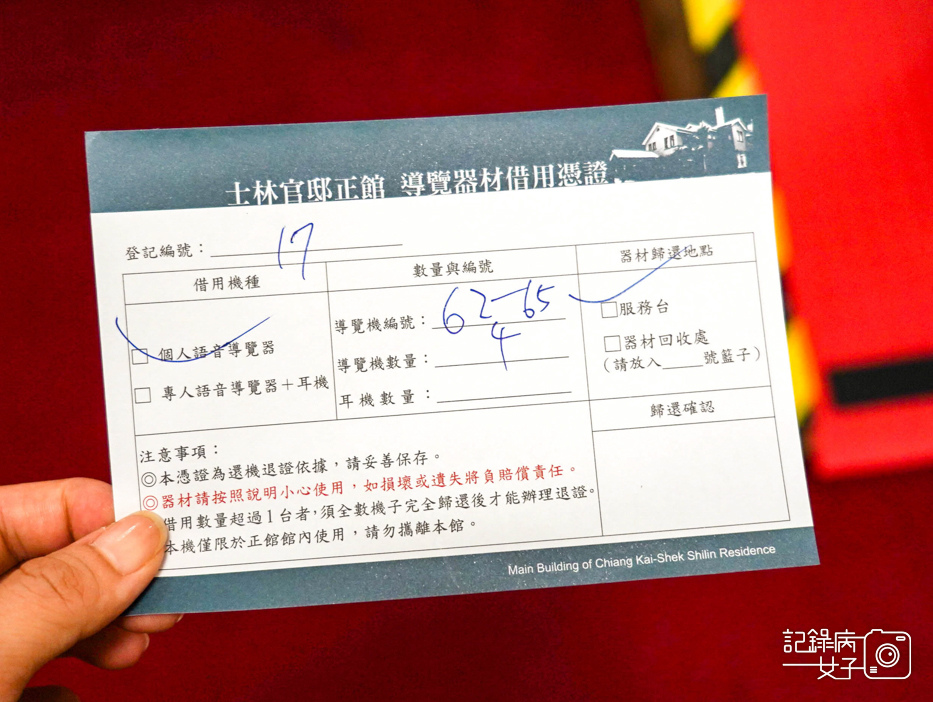 士林官邸正館 導覽器材借用憑證
登記編號：17
借用機種
數量與編號
器材歸還地點
□ 個人語音導覽器
□ 專人語音導覽器＋耳機
導覽機編號：62-65
導覽機數量：4
耳機數量：
□服務台
□器材回收處
（請放入　　號籃子）
歸還確認
注意事項：
◎本憑證為還機退證依據，請妥善保存。
◎器材請按照說明小心使用，如損壞或遺失將負賠償責任。
借用數量超過1台者，須全數機子完全歸還後才能辦理退證。
本機僅限於正館館內使用，請勿攜離本館。
Main Building of Chiang Kai-Shek Shilin Residence
記錄病
女子